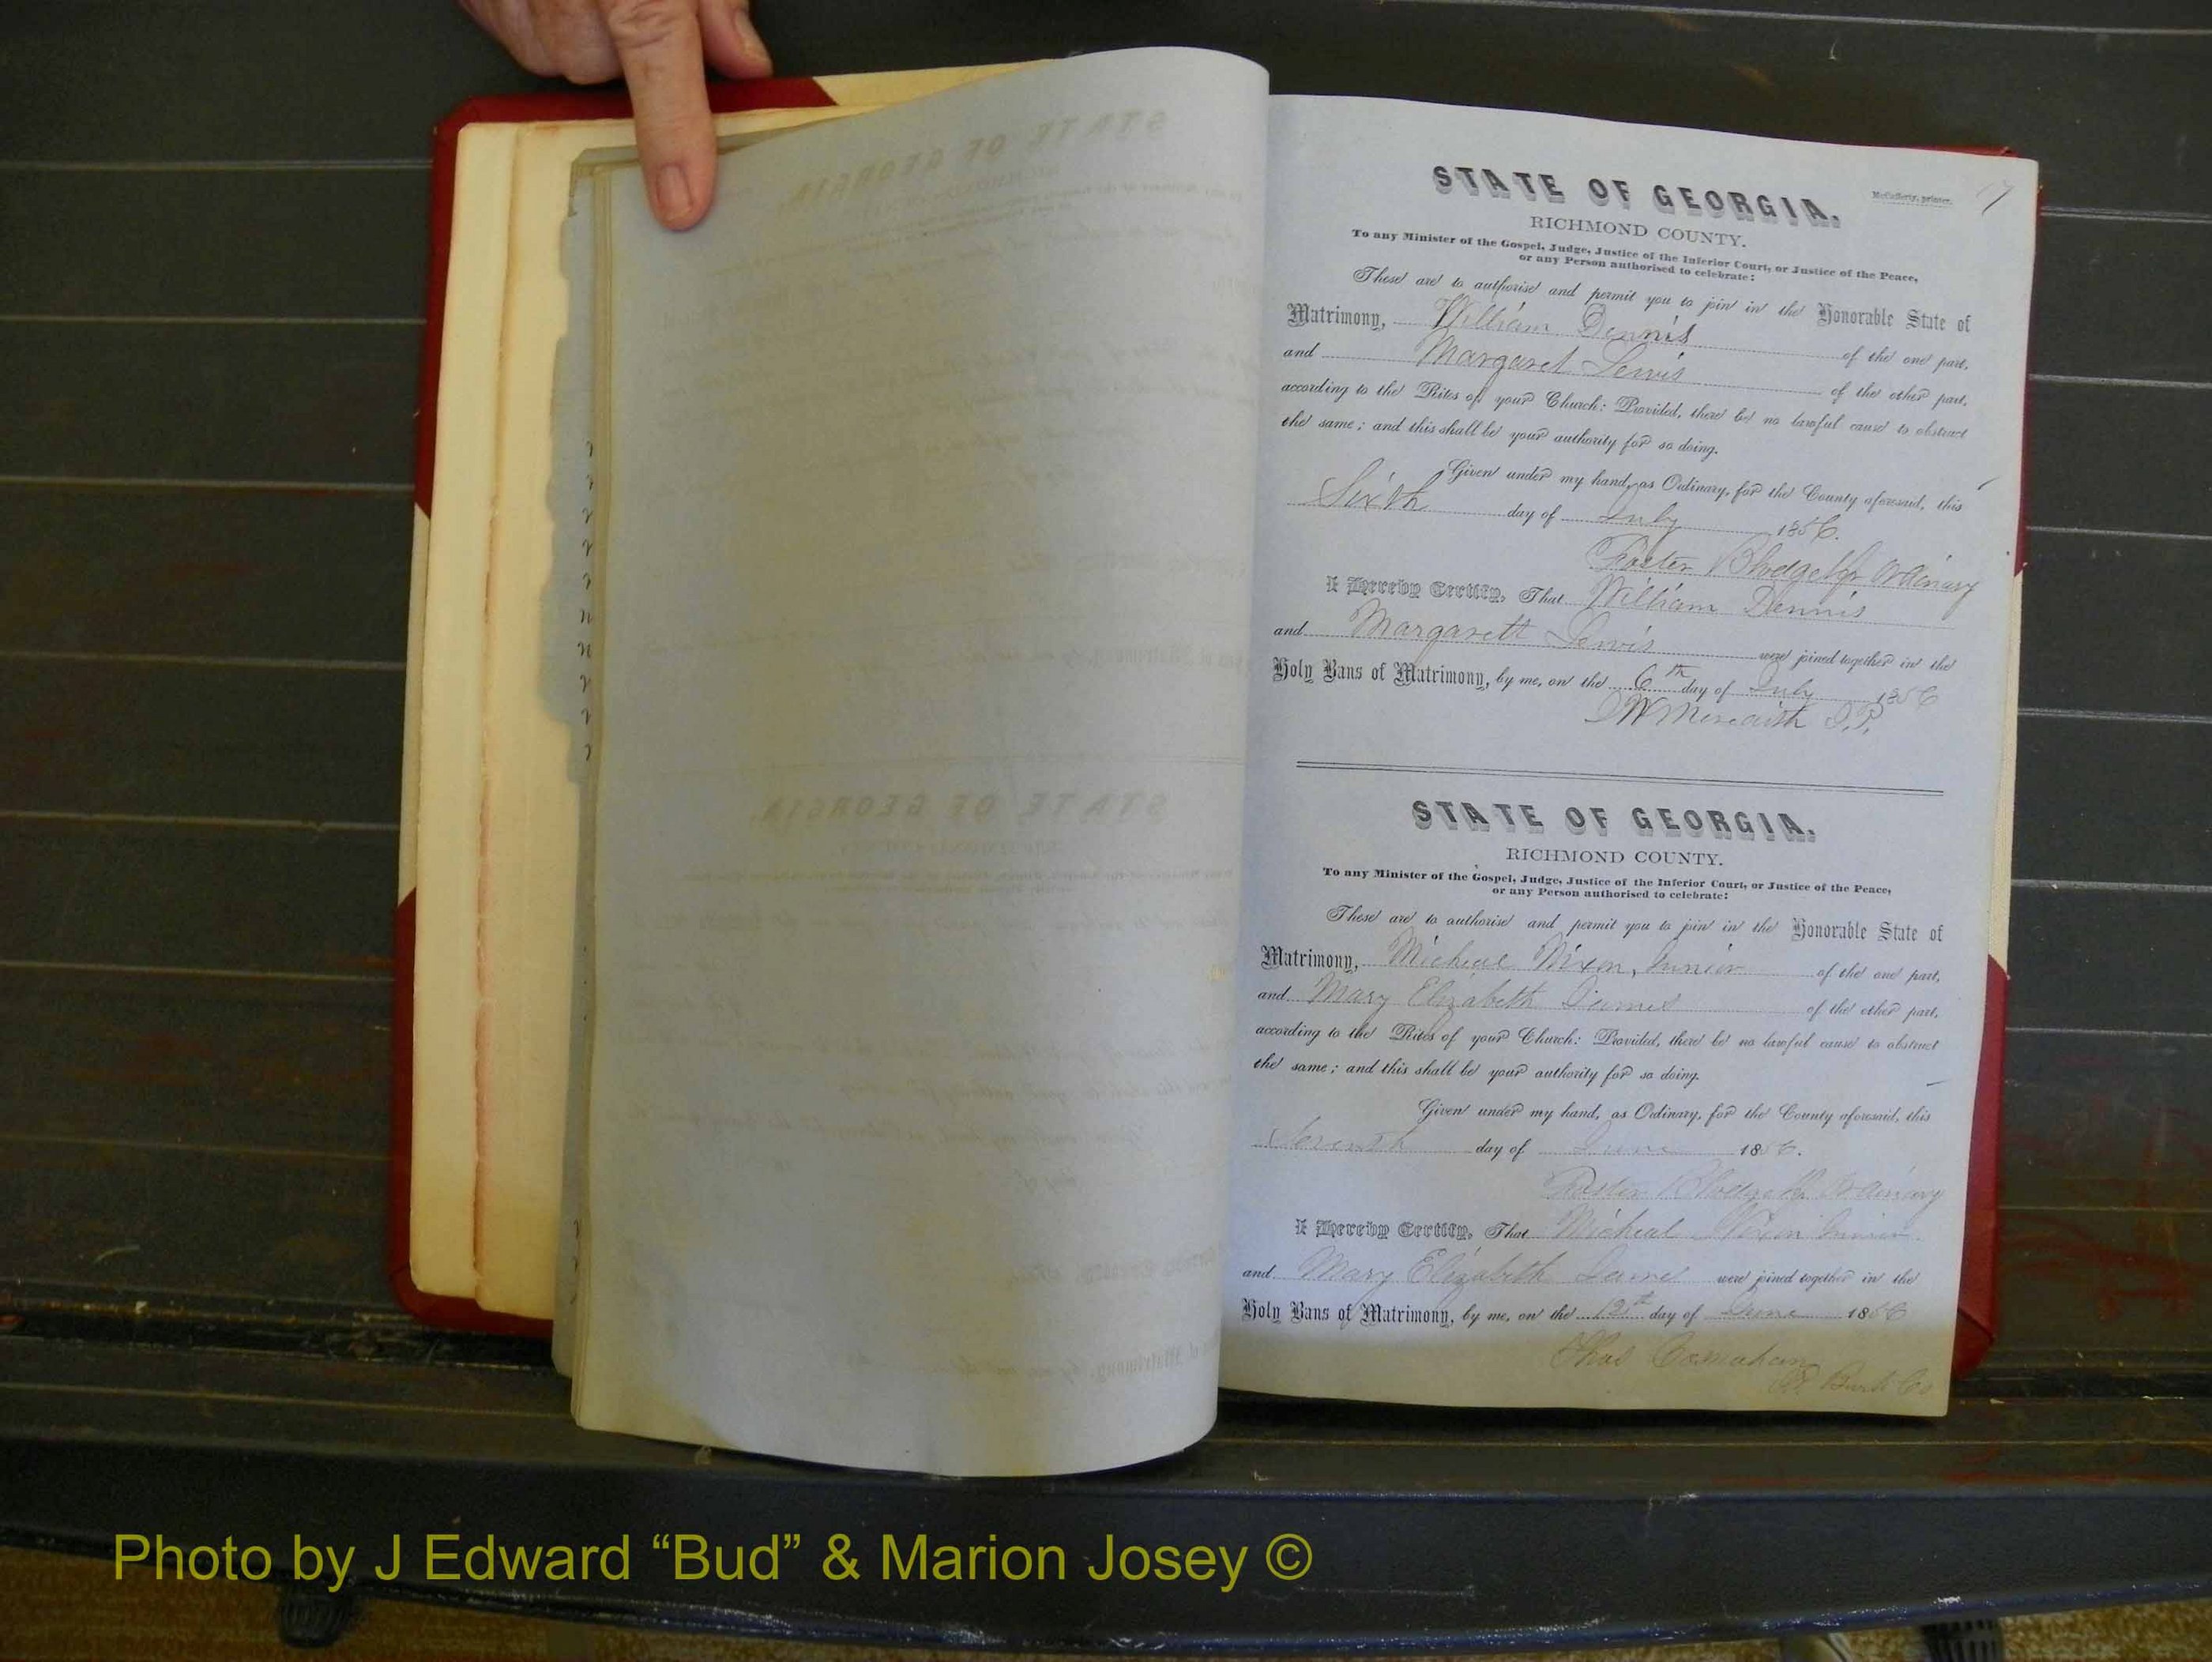 STATE OF GEORGIA.
McCafferty, printer.
17
RICHMOND COUNTY.
To any Minister of the Gospel, Judge, Justice of the Inferior Court, or Justice of the Peace,
or any Person authorised to celebrate:
These are to authorise and permit you to join in the Honorable State of
Matrimony, William Dennis of the one part,
and Margaret Lewis of the other part,
according to the Rites of your Church: Provided, there be no lawful cause to obstruct
the same; and this shall be your authority for so doing.
Given under my hand, as Ordinary, for the County aforesaid, this
Sixth day of July 1856.
Foster Blodget Jr Ordinary
I Hereby Certify, That William Dennis
and Margarett Lewis were joined together in the
Holy Bans of Matrimony, by me, on the 6th day of July 1856
Meredith J.P.
STATE OF GEORGIA.
RICHMOND COUNTY.
To any Minister of the Gospel, Judge, Justice of the Inferior Court, or Justice of the Peace,
or any Person authorised to celebrate:
These are to authorise and permit you to join in the Honorable State of
Matrimony, Micheal Nixon, Junior of the one part,
and Mary Elizabeth of the other part,
according to the Rites of your Church: Provided, there be no lawful cause to obstruct
the same; and this shall be your authority for so doing.
Given under my hand, as Ordinary, for the County aforesaid, this
Seventh day of June 1856.
Foster Blodget Jr Ordinary
I Hereby Certify, That Micheal Nixon Junior
and Mary Elizabeth were joined together in the
Holy Bans of Matrimony, by me, on the 12th day of June 1856
Thos
Burk Co
Photo by J Edward “Bud” & Marion Josey ©